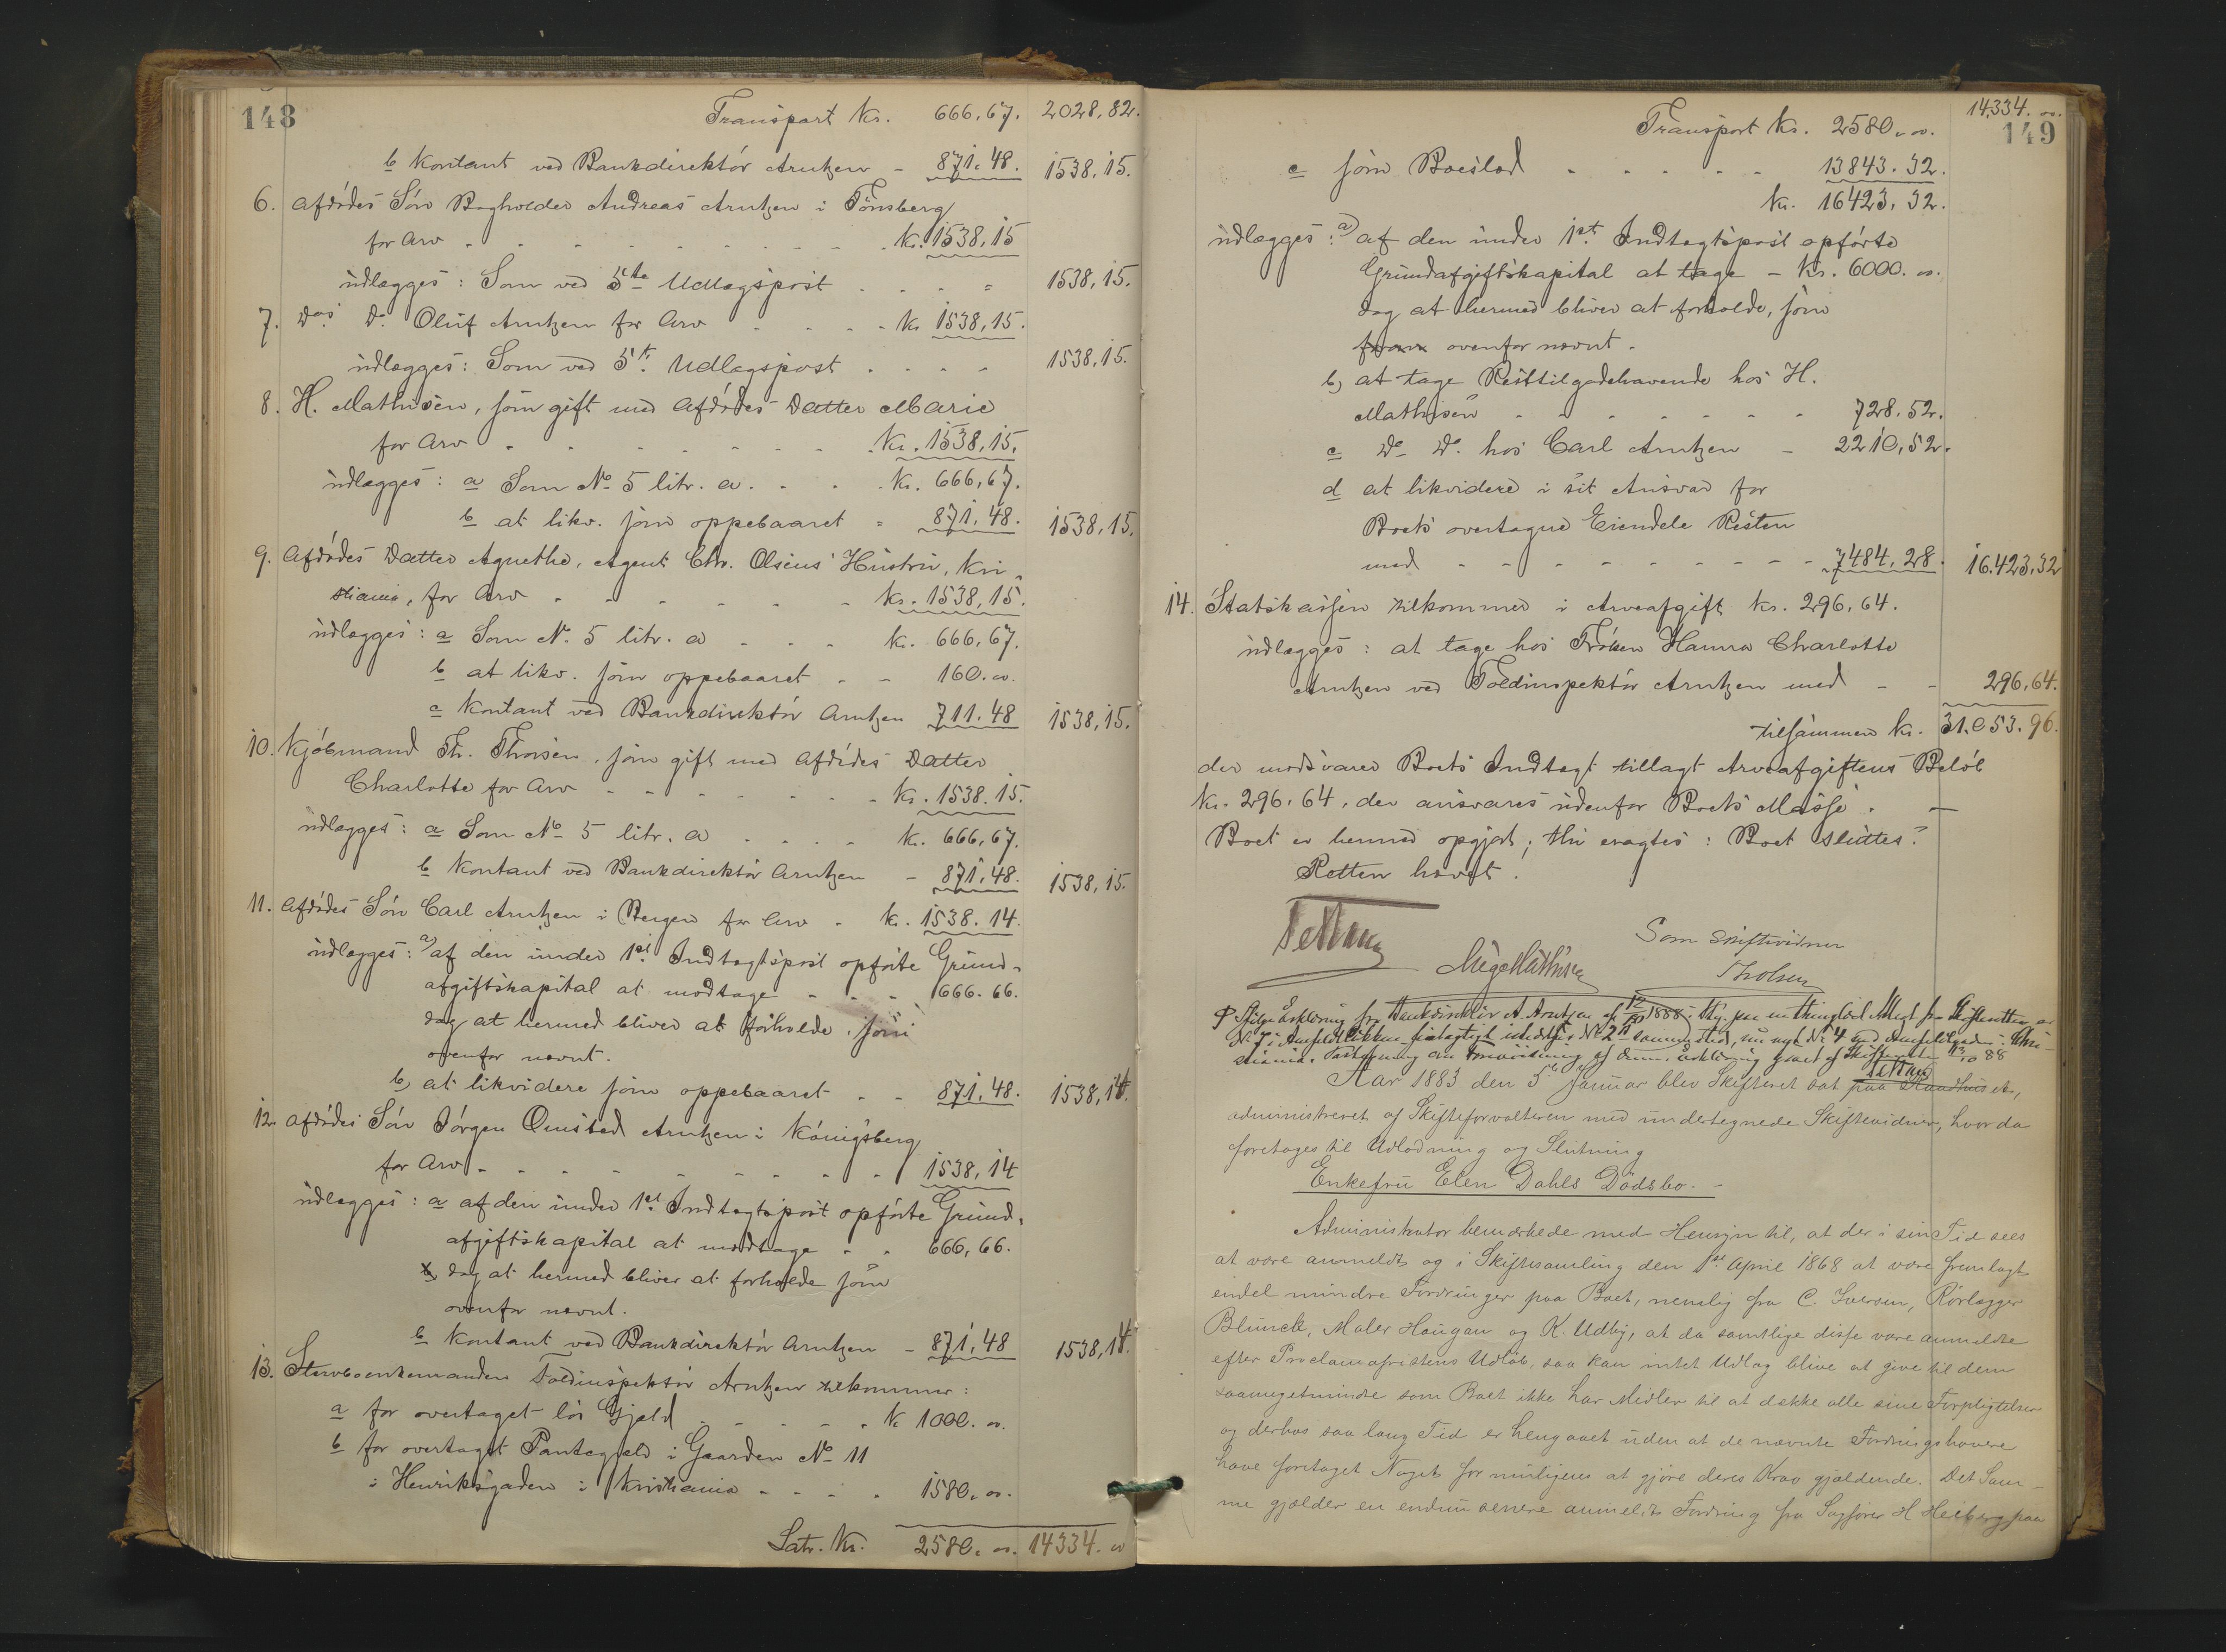 148
Transport Kr. 666,67. 2028,82.
b Kontant ved Bankdirektör Arntzen - 871.48. 1538,15.
6. Afdödes Sön Bogholder Andreas Arntzen i Tönsberg
for Arv - - - - Kr. 1538,15
udlægges: Som ved 5te Udlægspost - - - 1538,15.
7. Das Do Oluf Arntzen for Arv - - - Kr 1538,15.
udlægges: Som ved 5t. Udlægspost - - - 1538,15.
8. H. Mathisen, som gift med Afdödes Datter Marie
for Arv - - - - Kr. 1538,15.
udlægges: a Som No 5 litr. a. - - Kr. 666,67.
b at likv. som oppebaaret - 871.48. 1538,15.
9. Afdödes Datter Agnethe, Agent Chr. Olsens Hustru, Kri-
stiania, for Arv - - - - Kr. 1538,15.
udlægges: a Som No. 5 litr. a - - - Kr. 666,67.
b at likv. som oppebaaret - - 160.00.
c Kontant ved Bankdirektör Arntzen 711.48 1538,15.
10. Kjöbmand Th. Thorsen, som gift med Afdödes Datter
Charlotte for Arv - - - - Kr. 1538.15.
udlægges: a Som No 5 litr. a - - - Kr. 666,67.
b Kontant ved Bankdirektör Arntzen - 871,48. 1538,15.
11. Afdödes Sön Carl Arntzen i Bergen for Arv - Kr. 1538.14.
udlægges: a) af den under 1st. Indtægtspost opförte Grund-
afgiftskapital at modtage - - - 666.66.
dog at hermed bliver at forholde som
ovenfor nævnt.
b, at likvidere som oppebaaret - - 871.48. 1538,14.
12. Afdödes Sön Jörgen Qvisted Arntzen i Königsberg
for Arv - - - - 1538,14
udlægges: a af den under 1st. Indtægtspost opförte Grund-
afgiftskapital at modtage - - 666,66.
dog at hermed bliver at forholde som
ovenfor nævnt.
b Kontant ved Bankdirektör Arntzen - 871,48 1538,14.
13. Stervboenkemanden Toldinspektör Arntzen tilkommer:
a for overtaget lös Gjæld - - - - Kr 1000.00.
b for overtaget Pantegjæld i Gaarden No 11
i Henriksgaden i Kristiania - - - - 1580.00.
Latr. Kr. 2580.00. 14334.00
149
Transport Kr. 2580.00. 14334.00.
c som Boeslod - - - - 13843.32.
Kr. 16423,32.
udlægges: a) af den under 1st. Indtægtspost opförte
Grundafgiftskapital at tage - Kr. 6000.00.
dog at hermed bliver at forholde, som
ovenfor nævnt.
b, at tage Resttilgodehavende hos H.
Mathisen - - - - 728.52.
c Do Do. hos Carl Arntzen - 2210,52.
d at likvidere i sit Ansvar for
Boets overtagne Eiendele Resten
med - - - - 7484,28. 16.423,32
14. Statskassen tilkommer i Arveafgift Kr. 296,64.
udlægges: at tage hos Fröken Hanna Charlotte
Arntzen ved Toldinspektör Arntzen med - - 296,64.
tilsammen Kr. 31.053.96.
der modsvarer Boets Indtægt tillagt Arveafgiftens Belöb
Kr. 296.64, der ansvares udenfor Boets Masse. -
Boet er hermed opgjort; thi eragtes: Boet sluttes.
Retten hævet.
Som Skiftevidner
Aage Mathisen Th. Olsen
Ifölge Erklæring fra Bankdirektör A. Arntzen af 12/10 1888
Aar 1883 den 5te Januar blev Skifteret sat paa Raadhuset,
administreret af Skifteforvalteren med undertegnede Skiftevidner, hvor da
foretoges til Udlodning og Slutning
Enkefru Elen Dahls Dödsbo. -
Administrator bemærkede med Hensyn til, at der i sin Tid sees
at være anmeldt og i Skiftesamling den 1st April 1868 at være fremlagt
endel mindre Fordringer paa Boet, nemlig fra C. Iversen, Rörlægger
Blunck, Maler Haugan og K. Udby, at da samtlige disse vare anmeldte
efter Proclamafristens Udlöb, saa kan intet Udlæg blive at give til dem
saameget mindre som Boet ikke har Midler til at dække alle sine Forpligtelser
og derhos saa lang Tid er hengaaet uden at de nævnte Fordringshavere
have foretaget Noget for muligens at gjöre deres Krav gjældende. Det Sam-
me gjælder en endnu senere anmeldt Fordring fra Sagförer H Heiberg paa